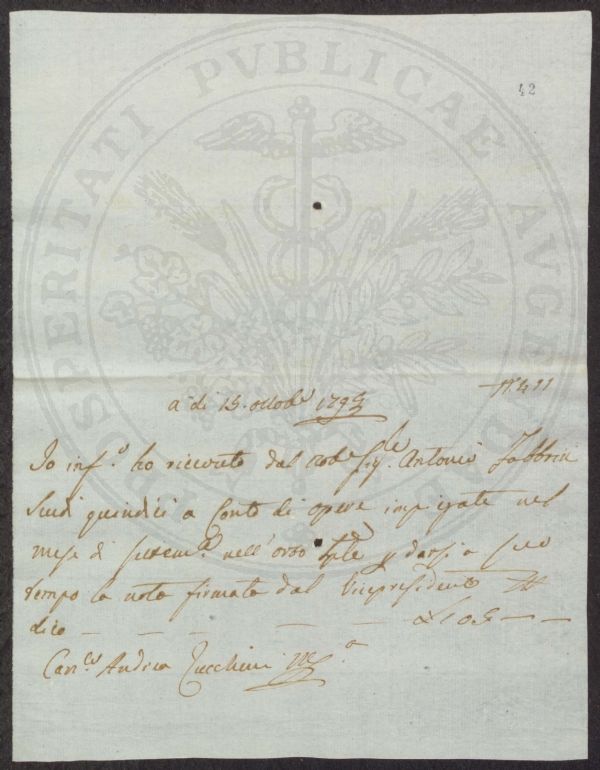 PROSPERITATI PVBLICAE AVGENDAE
42
N. 411
a di 15. ottobe
Io inf.o ho riceuto dal Sig.r Antonio Fabbrini
Scudi quindici a Conto di opere impiegate nel
mese di nell'orto p darsi a suo
tempo la nota firmata dal Vicepresidente
dico — — — — — 105 — —
Andrea Zucchini